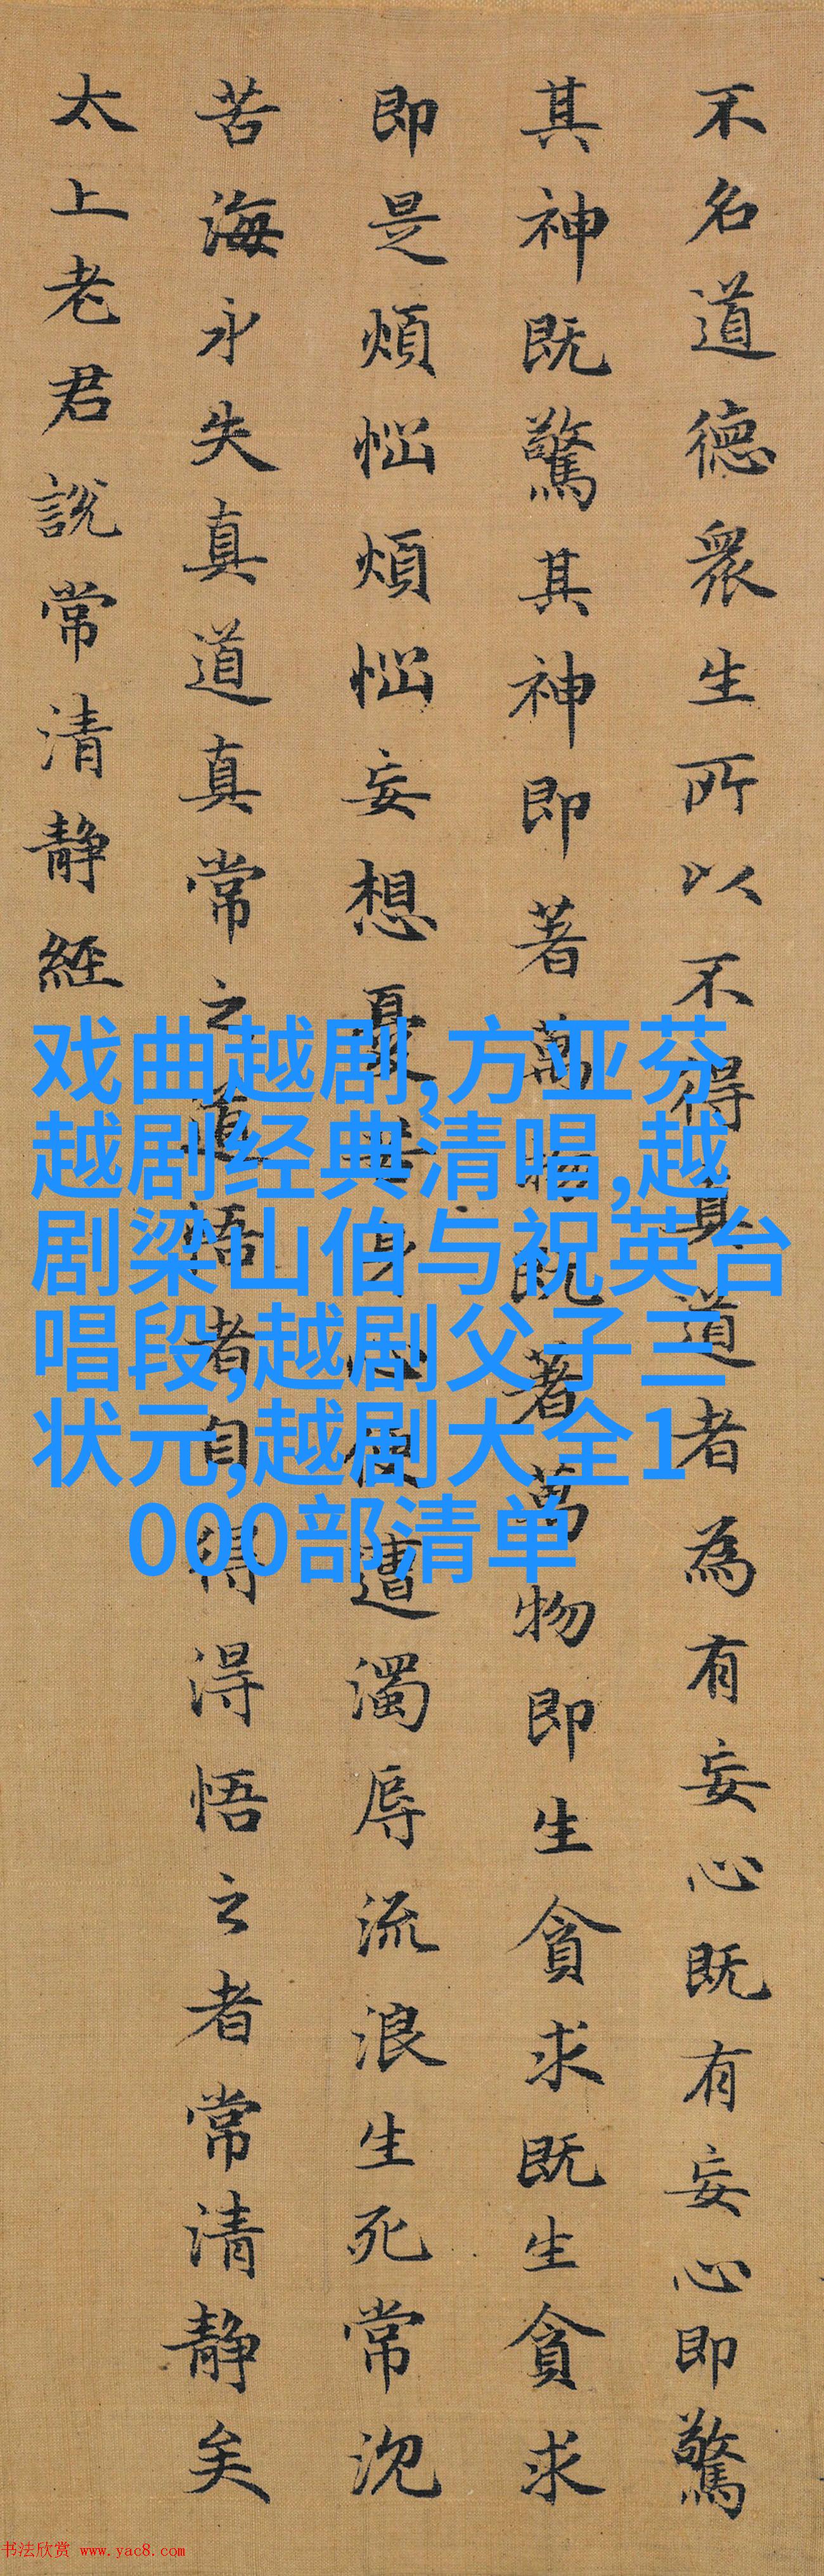 不名道德眾生所以不得真道者為有妄心既有妄心即驚
其神既驚其神即著萬物既著萬物即生貪求既生貪求
即是煩惱煩惱妄想憂苦身心便遭濁辱流浪生死常沉
苦海永失真道真常之道悟者自得得悟之者常清靜矣
太上老君說常清靜經
戏曲越剧,方亚芬
越剧经典清唱,越
剧梁山伯与祝英台
唱段,越剧父子三
状元,越剧大全1
000部清单
书法欣赏 www.yac8.com